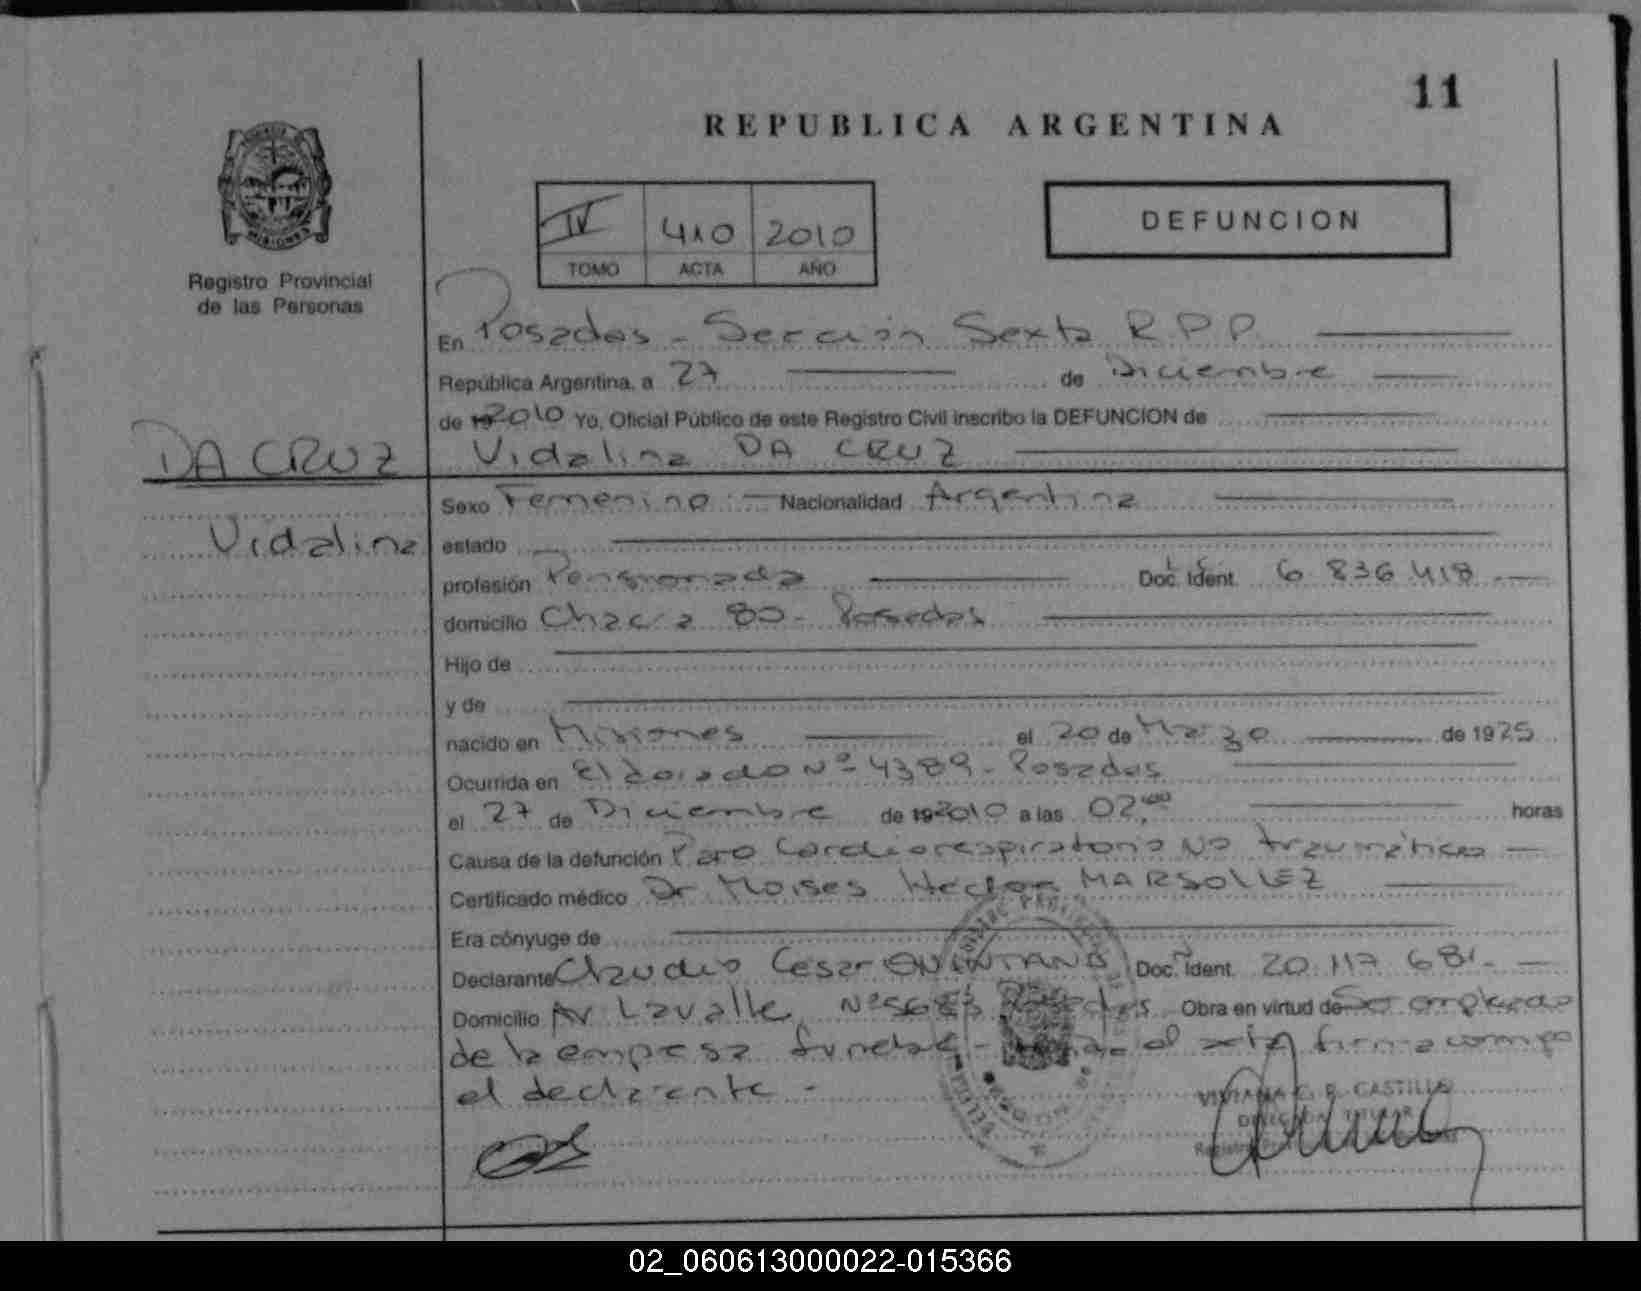 11
REPUBLICA ARGENTINA
IV 410 2010
TOMO ACTA AÑO
DEFUNCION
MISIONES
Registro Provincial
de las Personas
En Posadas - Sección Sexta R.P.P.
República Argentina, a 27 de Diciembre
de 192010 Yo, Oficial Público de este Registro Civil inscribo la DEFUNCION de
DA CRUZ Vidalina DA CRUZ
Sexo Femenino Nacionalidad Argentina
Vidalina estado
profesión Pensionada Doc. Ident. 6 836 418
domicilio Chacra 80 - Posadas
Hijo de
y de
nacido en Misiones el 20 de Marzo de 1925
Ocurrida en Eldorado Nº 4389 - Posadas
el 27 de Diciembre de 192010 a las 02,00 horas
Causa de la defunción Paro Cardiorespiratorio No traumático
Certificado médico Dr Moises Hector MARSOLLEZ
Era cónyuge de
Declarante Claudio Cesar QUINTANA Doc. Ident. 20 117 681
Domicilio Av Lavalle Nº Posadas Obra en virtud de Ser empleado
de la empresa funebre - el acta firma
el declarante -
VIVIANA C. R. CASTILLO
02_060613000022-015366